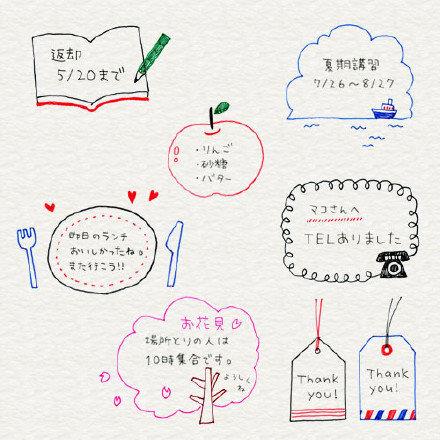 返却
5/20まで
夏期講習
7/26〜8/27
・りんご
・砂糖
・バター
マコさんへ
TELありました
昨日のランチ
おいしかったね。
また行こう!!
お花見
場所とりの人は
10時集合です。
よろしく
ね
Thank
you!
Thank
you!